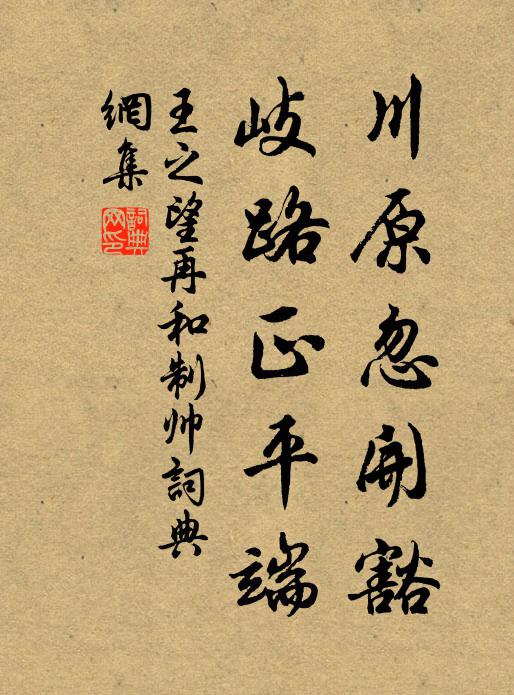 川原忽開豁
岐路正平端
王之望再和制帅詞典
網集
詞典
网印